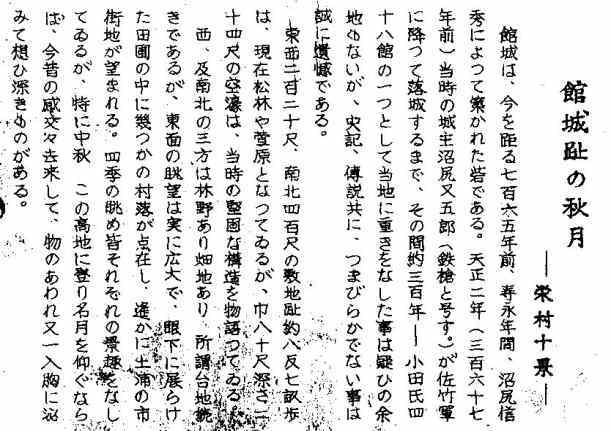 館城趾の秋月
―栄村十景―
館城は、今を距る七百六五年前、寿永年間、沼尻信
秀によつて築かれた砦である。天正二年(三百六十七
年前)当時の城主沼尻又五郎(鉄槍と号す。)が佐竹軍
に降つて落城するまで、その間約三百年―小田氏四
十八館の一つとして当地に重きをなした事は疑ひの余
地もないが、史記、傳説共に、つまびらかでない事は
誠に遺憾である。
東西二百二十尺、南北四百尺の敷地趾約八反七畝歩
は、現在松林や萱原となつてゐるが、巾八十尺深さ二
十四尺の空濠は、当時の堅固な構造を物語つてゐる。
西、及南北の三方は林野あり畑地あり、所謂台地続
きであるが、東面の眺望は実に広大で、眼下に展らけ
た田圃の中に幾つかの村落が点在し、遙かに土浦の市
街地が望まれる。四季の眺め皆それぞれの景趣をなし
てゐるが、特に中秋 この高地に登り名月を仰ぐなら
ば、今昔の感交々去来して、物のあわれ又一入胸に沁
みて想ひ深きものがある。